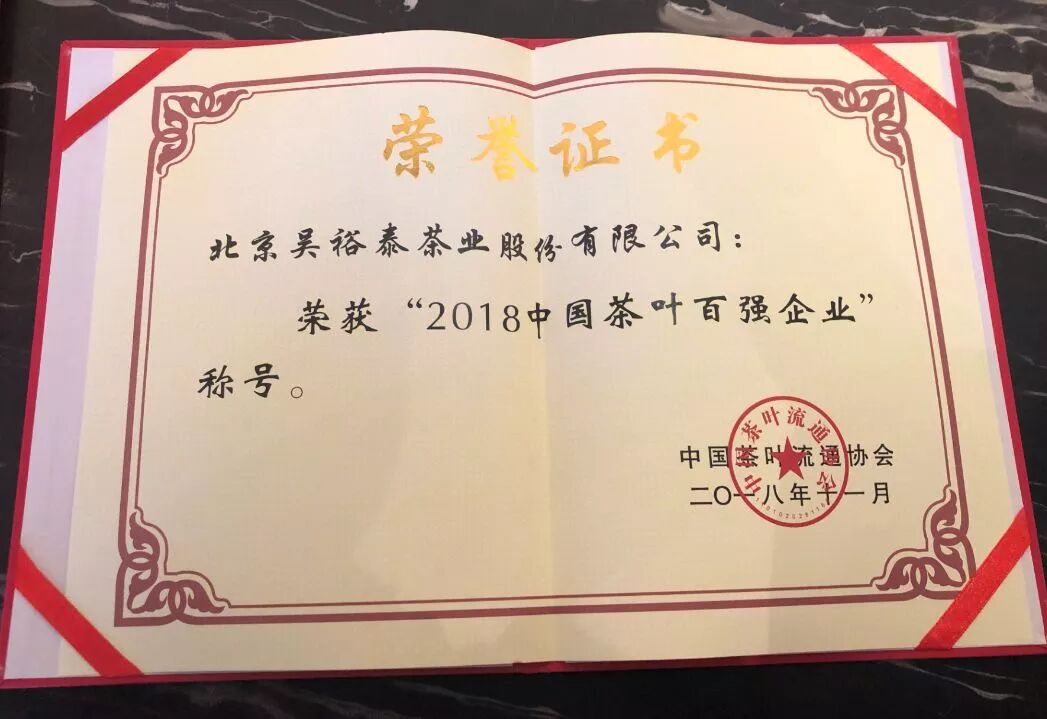 荣誉证书
北京吴裕泰茶业股份有限公司：
荣获“2018中国茶叶百强企业”
称号。
中国茶叶流通协会
二〇一八年十一月
中国茶叶流通协会